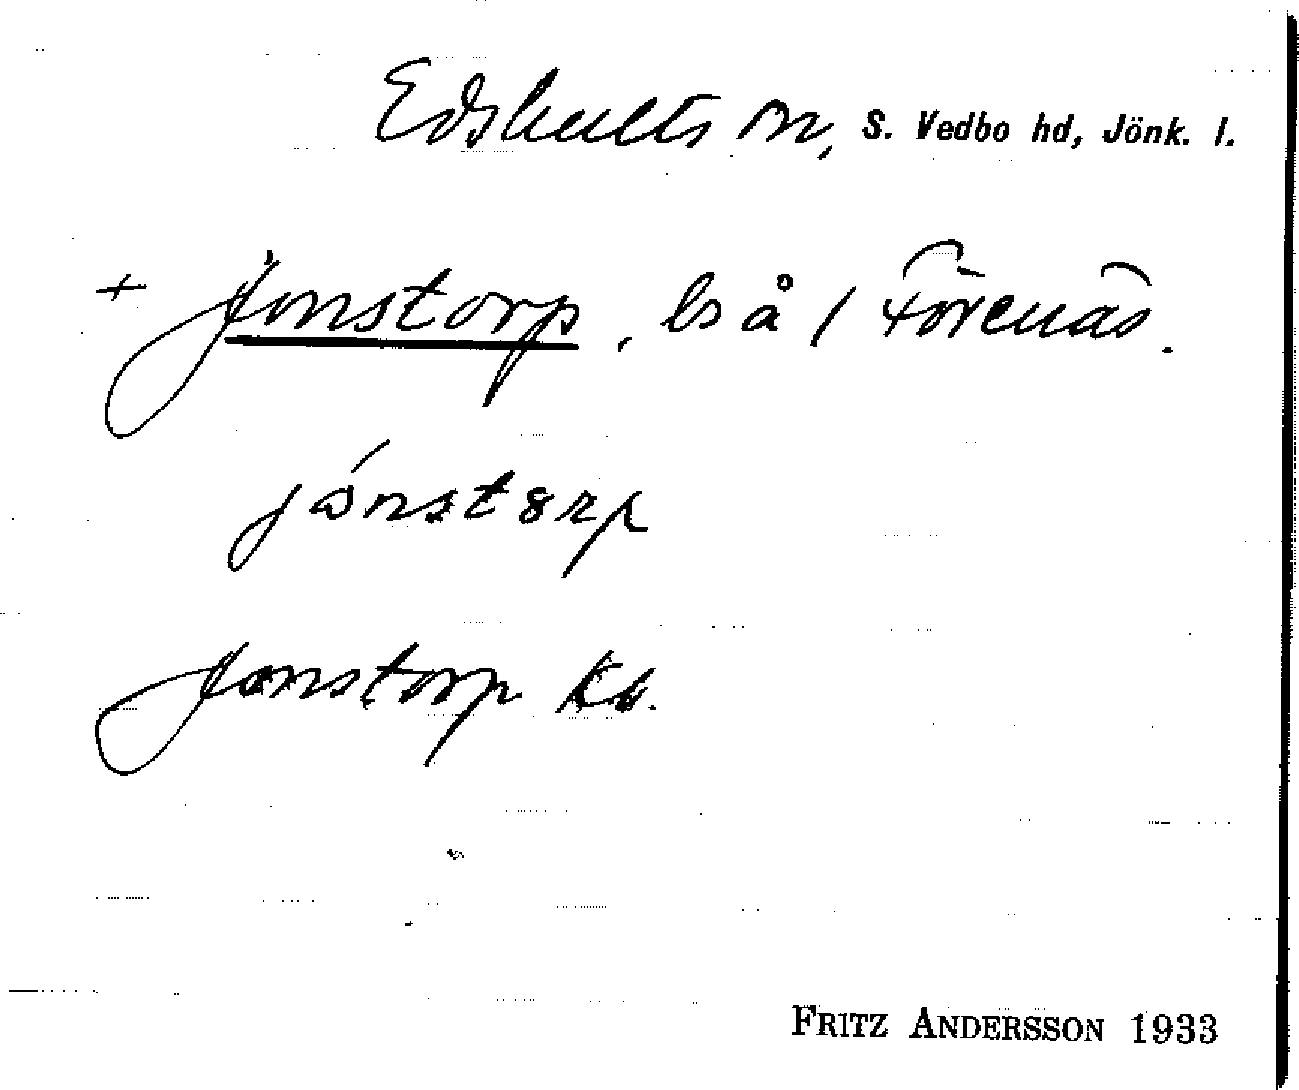 Edshults sn, S. Vedbo hd, Jönk. l.
+ Jonstorp, ls å / Förenäs.
jónstorp
Jonstorp Kb.
FRITZ ANDERSSON 1933